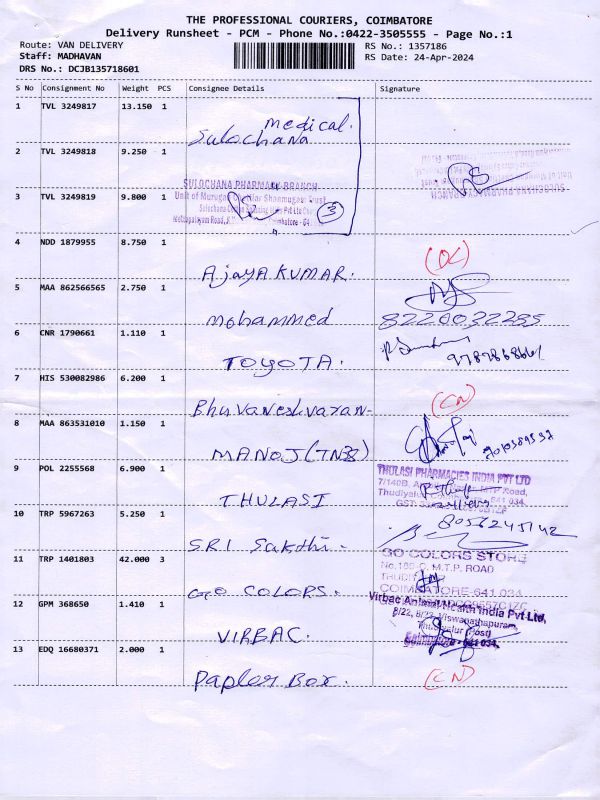 THE PROFESSIONAL COURIERS, COIMBATORE
Delivery Runsheet - PCM - Phone No.:0422-3505555 - Page No.:1
Route: VAN DELIVERY
RS No.: 1357186
Staff: MADHAVAN
RS Date: 24-Apr-2024
DRS No.: DCJB135718601
S No Consignment No Weight PCS Consignee Details Signature
1 TVL 3249817 13.150 1
medical.
Sulochana
2 TVL 3249818 9.250 1
SULOCHANA PHARMACY BRANCH
3 TVL 3249819 9.800 1
Unit of Murugan Chettiar Shanmugam Trust
3
4 NDD 1879955 8.750 1
AjayA KUMAR.
5 MAA 862566565 2.750 1
Mohammed 8220032285
6 CNR 1790661 1.110 1
TOYOTA.
7 HIS 530082986 6.200 1
(CN)
Bhuvaneshvaran-
8 MAA 863531010 1.150 1
MANOJ (TN38)
9 POL 2255568 6.900 1
THULASI PHARMACIES INDIA PVT LTD
7/140B, MTP Road,
THULASI
10 TRP 5967263 5.250 1
8056245142
SRI Sakthi-
11 TRP 1401803 42.000 3
GO COLORS STORE
M.T.P. ROAD
COIMBATORE-641 034
GO COLORS.
12 GPM 368650 1.410 1
Virbac Animal Health India Pvt Ltd,
Viswanathapuram,
Thudiyalur (Post)
Coimbatore - 641 034.
VIRBAC.
13 EDQ 16680371 2.000 1
(CN)
Papler Box.